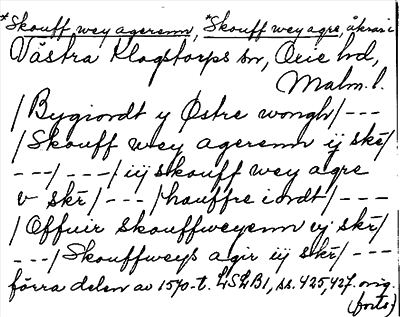 *Skouff wey agerenn, *Skouff wey agre, åkrar i
Västra Klagstorps sn, Oxie hd,
Malm. l.
/Bygiordt y Østre wongh/---
/Skouff wey agerenn ij skr̄/
---/---/iij skouff wey agre
v skr̄/---/houffre iordt/---
/Offuir skouffweyenn vj skr̄/
---/Skouffweys agir iij skr̄/---
förra delen av 1570-t. LSLB1, ss. 425, 427. orig.
(forts.)